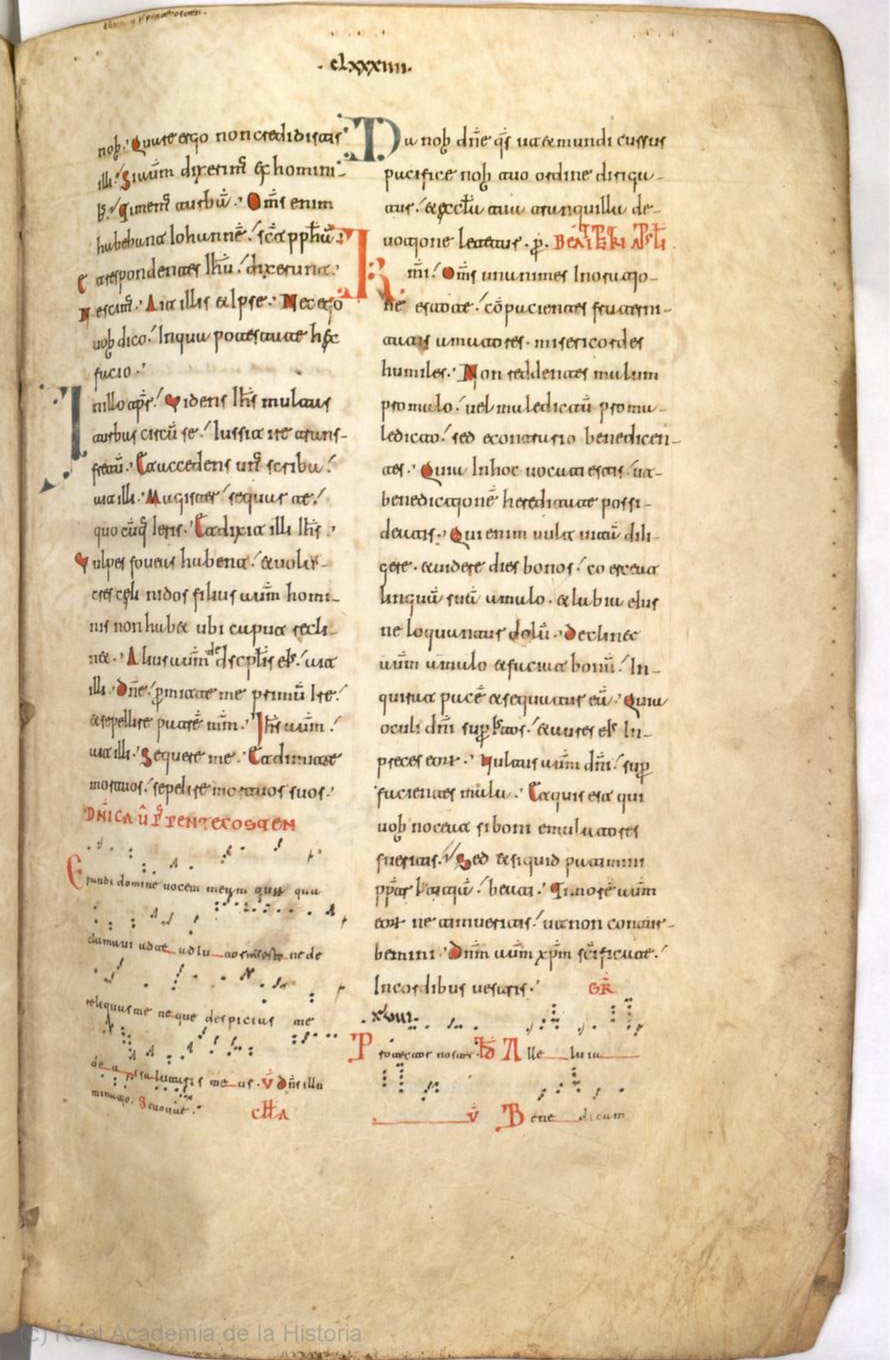 .clxxxiiii.
nob. Quare ergo non credidistis
illi. Si autem dixerimus ex homini
b; timemus turbā. Oms enim
habebant Iohannē. sic̄ pphām.
Et respondentes Ihū. dixerunt.
Nescimꝰ. Ait illis et Ipse. Nec ego
uob dico. In qua potestate hęc
facio.
In illo tp̄r. Videns Ihs multas
turbas circū se. Iussit ire trans-
fretū. Et accedens unꝰ scriba.
ait illi. Magister. sequar te.
quocūq ieris. Et dixit illi Ihs.
Vulpes foueas habent. et uolu-
cres cęli nidos filius autem homi-
nis non habet ubi caput recli-
net. Alius autem de discipulis eius. ait
illi. Dn̄e. p̄mitte me primū ire.
et sepelire patrē mm̄. Ihs autem.
ait illi. Sequere me. Et dimitte
mortuos. sepelire mortuos suos.
DNICA V P PENTECOSTEN
Exaudi domine uocem meam qua
clamaui ad te adiu tor m̄s esto ne de
relinquas me neque despicias me
de us salutaris me us. V Dn̄s illu
minatio. Seuouae.
CŁLA
Da nob dn̄e qs ut et mundi cursus
pacifice nob tuo ordine dirigi-
tur. et ecctia tua tranquilla de-
uotione letetur. p. BEATI PETRI APTLI
Km̄i. Oms unanimes In oratio-
ne estote. cō pacientes frater ni-
tatis amatores. misericordes
humiles. Non reddentes malum
pro malo. uel maledictū pro ma-
ledicto. sed econtrario benedicen-
tes. Quia In hoc uocati estis. ut-
benedictionē hereditate possi-
deatis. Qui enim uult uitā dili-
gere. et uidere dies bonos. coerceat
linguā suā a malo. et labia eius
ne loquantur dolū. Declinet
autem a malo et faciat bonū. In-
quirat pacē et sequatur eā. Quia
oculi dn̄i sup iustos. et aures eius In-
preces eorum. Vultus autem dn̄i. sup
facientes mala. Et quis est qui
uob noceat si boni emulatores
fueritis. Sed et siquid patimini
ppter iusticiā. beati. Timorē autem
eorum ne timueritis. ut non contur-
bemini. Dnm autem xpm scificate.
In cordibus uestris. GR
.xlviii.
Protector noster Alle lu ia
V Bene dicam